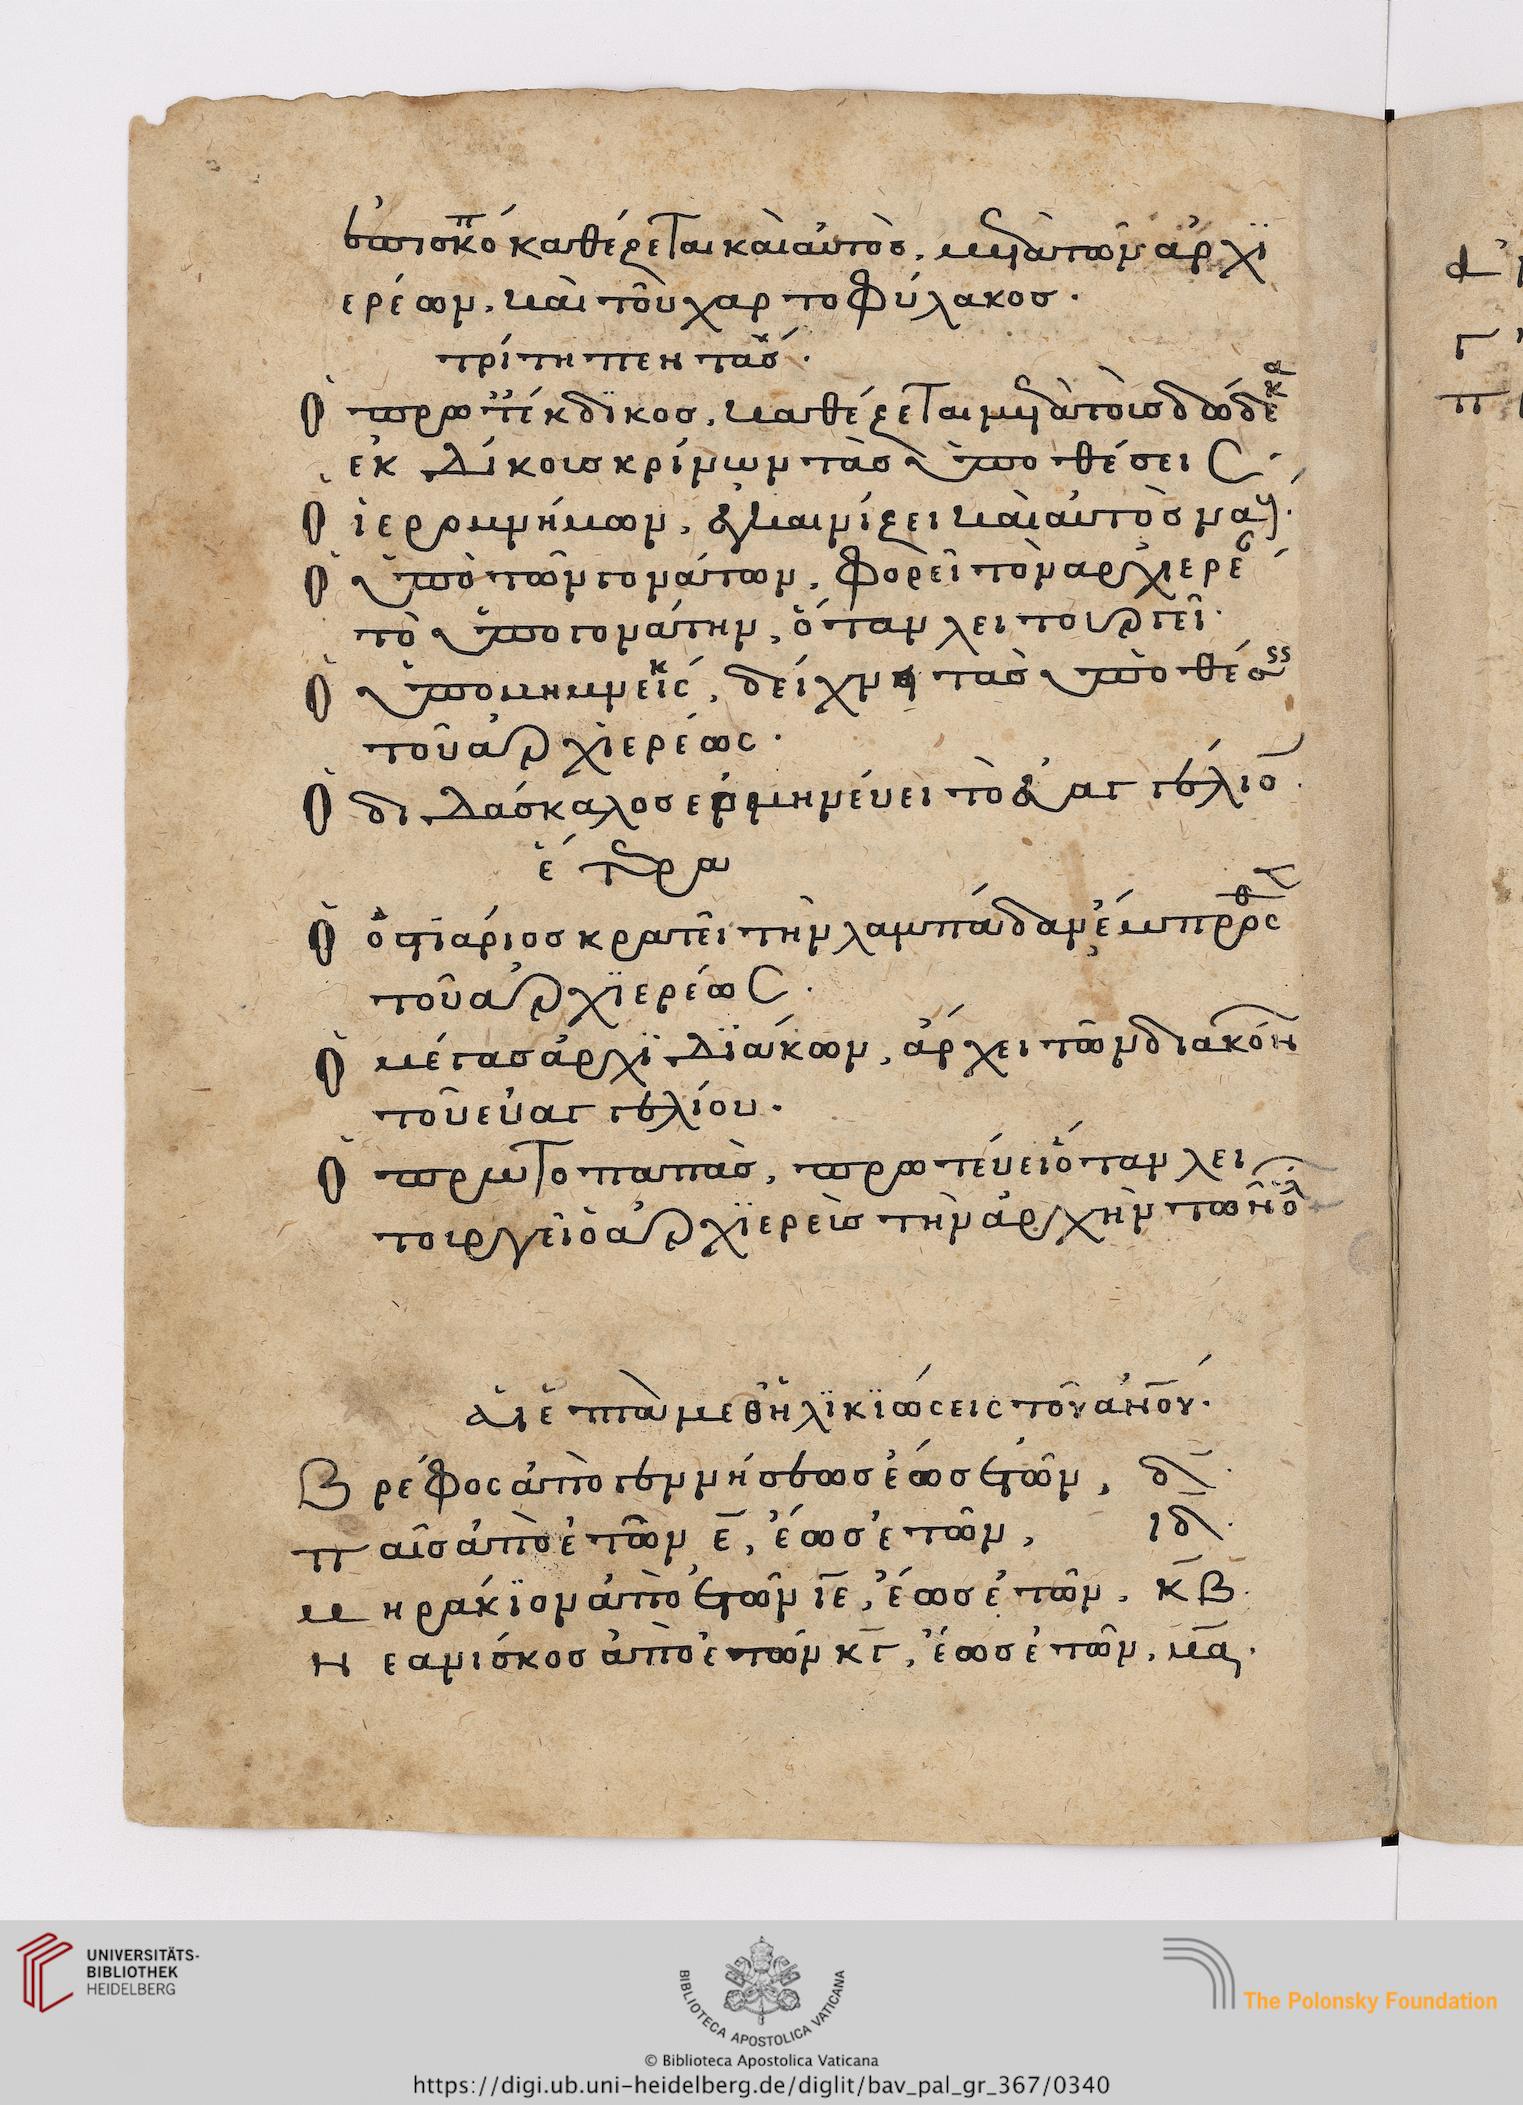 ἐπίσκοπο καθέζεται καὶ αὐτὸς, μετὰ τῶν ἀρχϊ
ερέων, καὶ τοῦ χαρτοφύλακος.
τρίτη πεντάς.
Ὁ πρωτέκδϊκος, καθέζεται μετὰ τοῖς δώδεκα
ἐκδίκοις κρίνων τὰς ὑποθέσεις.
Ὁ ἱερομνήμων, ἐγκαινίζει καὶ αὐτὸς να.
Ὁ ὑπὸ τῶν γονάτων, φορεῖ τὸν ἀρχιερέ
τὸ ὑπογονάτην, ὅταν λειτουργεῖ.
Ὁ ὑπομημνεισκ, δείχνη τὰς ὑποθέσεις
τοῦ ἀρχϊερέως.
Ὁ διδάσκαλος ἑρμηνέυει τὸ εὐαγγέλιον.
ἑτέρα
Ὁ ὀστϊάριος κρατεῖ τὴν λαμπάδαν ἔμπροσθεν
τοῦ ἀρχϊερέως.
Ὁ μέγας ἀρχϊδϊάκων, ἄρχει τῶν διακόνων
τοῦ εὐαγγελίου.
Ὁ πρωτοπαπὰς, πρωτέυει ὅταν λει
τουργεῖ ὁ ἀρχϊερεὺς τὴν ἀρχὴν τῶν ὅλ
ἅι ἑπτὰ μεθηλϊκϊώσεις τοῦ ἀνου.
Βρέφος ἀπὸ γεννήσεως ἕως ἐτῶν, δ.
παῖς ἀπὸ ἐτῶν ε, ἕως ἐτῶν, ιδ.
μηράκϊον ἀπὸ ἐτῶν ιε, ἕως ἐτῶν, κβ.
Νεανίσκος ἀπὸ ἐτῶν κγ, ἕως ἐτῶν, μα.
UNIVERSITÄTS-
BIBLIOTHEK
HEIDELBERG
BIBLIOTECA APOSTOLICA VATICANA
The Polonsky Foundation
© Biblioteca Apostolica Vaticana
https://digi.ub.uni-heidelberg.de/diglit/bav_pal_gr_367/0340